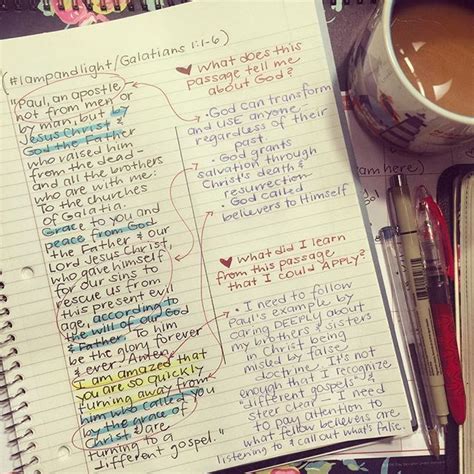 (#lampandlight/Galatians 1:1-6)
"Paul, an apostle -
not from men or
by man, but by
Jesus Christ &
God the Father
who raised him
from the dead -
and all the brothers
who are with me:
To the churches
of Galatia.
Grace to you and
peace from God
the Father & our
Lord Jesus Christ,
who gave himself
for our sins to
rescue us from
this present evil
age, according to
the will of our God
& Father. To him
be the glory forever
& ever. Amen.
I am amazed that
you are so quickly
turning away from
him who called you
by the grace of
Christ & are
turning to a
different gospel."
What does this
passage tell me
about God?
• God can transform
and USE anyone
regardless of their
past.
• God grants
salvation through
Christ's death &
resurrection
• God called
believers to Himself.
What did I learn
from this passage
that I could APPLY?
• I need to follow
Paul's example by
caring DEEPLY about
my brothers & sisters
in Christ being
misled by false
doctrine. It's not
enough that I recognize
"different gospels" &
steer clear - I need
to pay attention to
what fellow believers are
listening to & call out what's false.
am here)